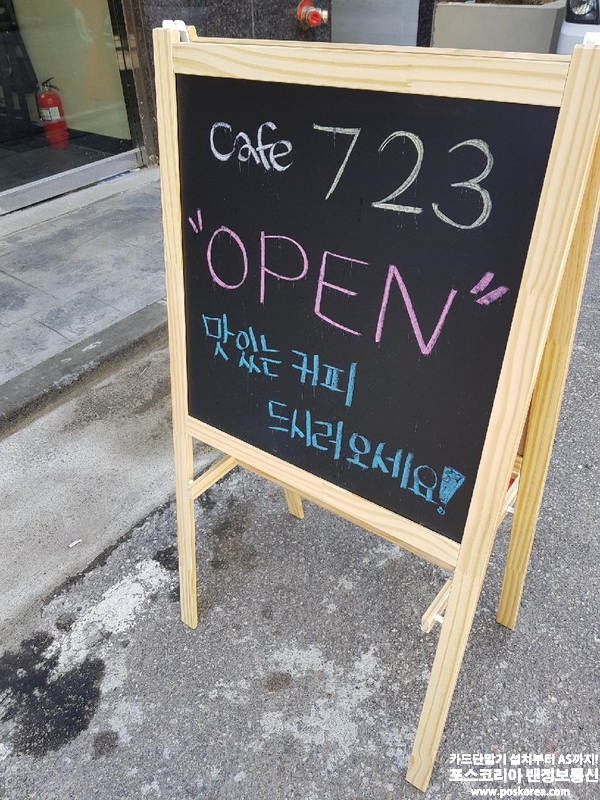 Cafe 723
"OPEN"
맛있는 커피
드시러 오세요!
카드단말기 설치부터 AS까지!
포스코리아 밴정보통신
www.poskorea.com